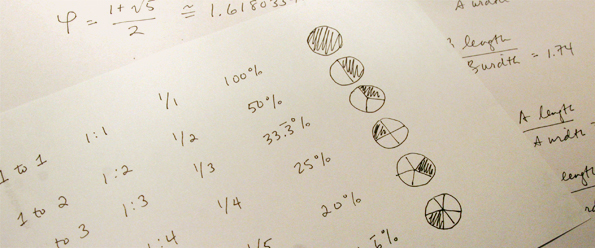 φ = 1+√5 / 2 ≅ 1.61803
A width
length
B width = 1.74
A length
A width =
length
1 to 1 1:1 1/1 100%
1 to 2 1:2 1/2 50%
to 3 1:3 1/3 33.3̅%
1:4 1/4 25%
1/5 20%
6̅%